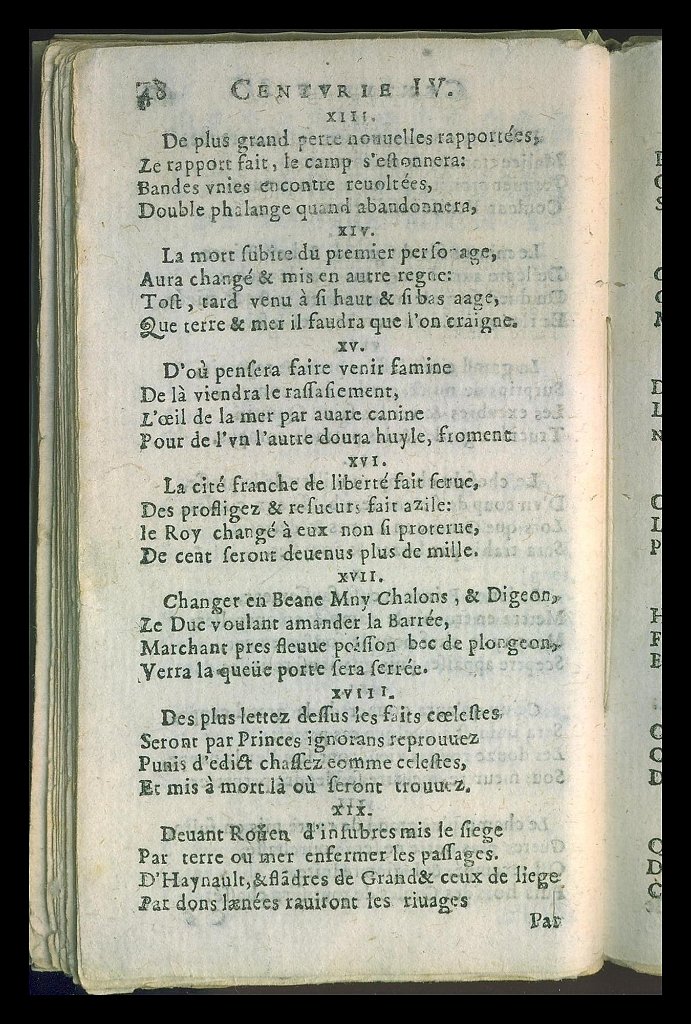 78 CENTVRIE IV.
XIII.
De plus grand perte nouuelles rapportées,
Le rapport fait, le camp s'estonnera:
Bandes vnies encontre reuoltées,
Double phalange quand abandonnera,
XIV.
La mort subite du premier personage,
Aura changé & mis en autre regne:
Tost, tard venu à si haut & si bas aage,
Que terre & mer il faudra que l'on craigne.
XV.
D'où pensera faire venir famine
De là viendra le rassasiement,
L'œil de la mer par auare canine
Pour de l'vn l'autre doura huyle, froment
XVI.
La cité franche de liberté fait serue,
Des profligez & resueurs fait azile:
le Roy changé à eux non si proterue,
De cent seront deuenus plus de mille.
XVII.
Changer en Beane Mny Chalons, & Digeon,
Le Duc voulant amander la Barrée,
Marchant pres fleuue poisson bec de plongeon,
Verra la queüe porte sera serrée.
XVIII.
Des plus lettez dessus les faits cœlestes
Seront par Princes ignorans reprouuez
Punis d'edict chassez comme celestes,
Et mis à mort là où seront trouuez.
XIX.
Deuant Rouen d'insubres mis le siege
Par terre ou mer enfermer les passages.
D'Haynault, & flãdres de Grand & ceux de liege
Par dons lænées rauiront les riuages
Par